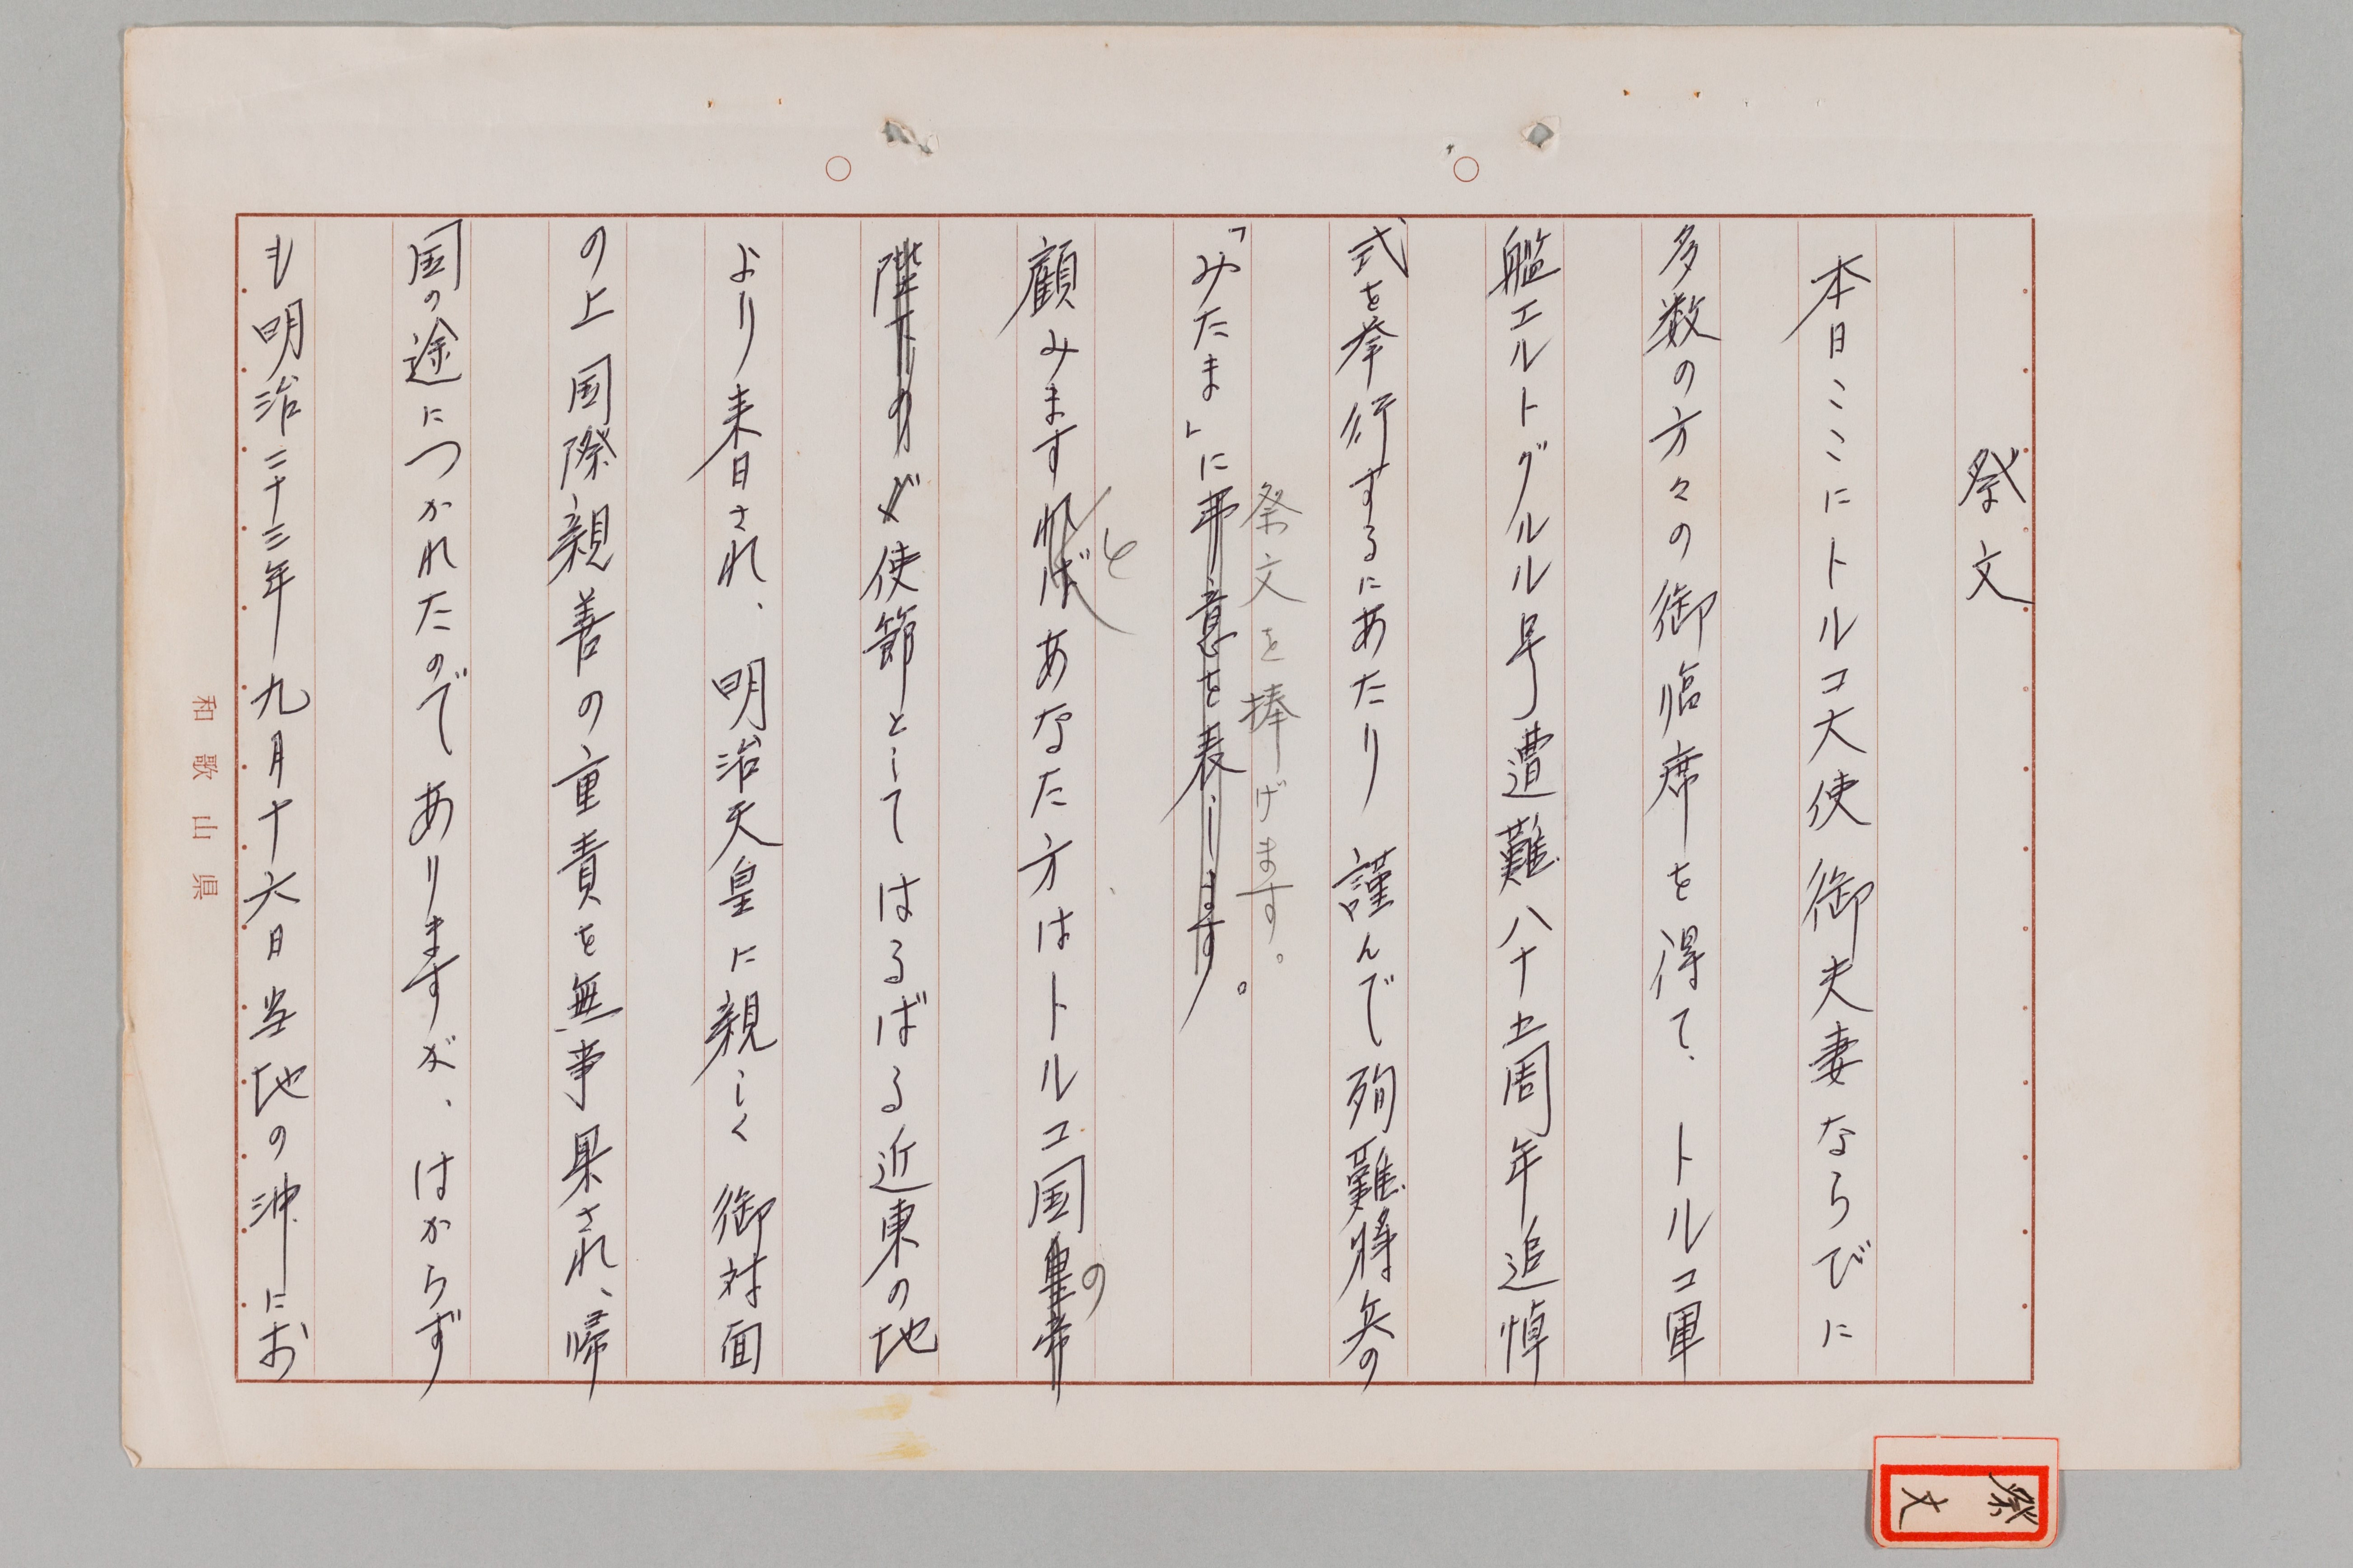 祭文
本日ここにトルコ大使御夫妻ならびに
多数の方々の御臨席を得て、トルコ軍
艦エルトグルル号遭難八十五周年追悼
式を挙行するにあたり謹んで殉難将兵の
祭文を捧げます。
「みたま」に弔意を表します。
と
の
顧みますればあなた方はトルコ国皇帝
陛下のが使節としてはるばる近東の地
より来日され、明治天皇に親しく御対面
の上国際親善の重責を無事果され、帰
国の途につかれたのでありますが、はからず
も明治二十三年九月十六日当地の沖にお
和歌山県
祭文